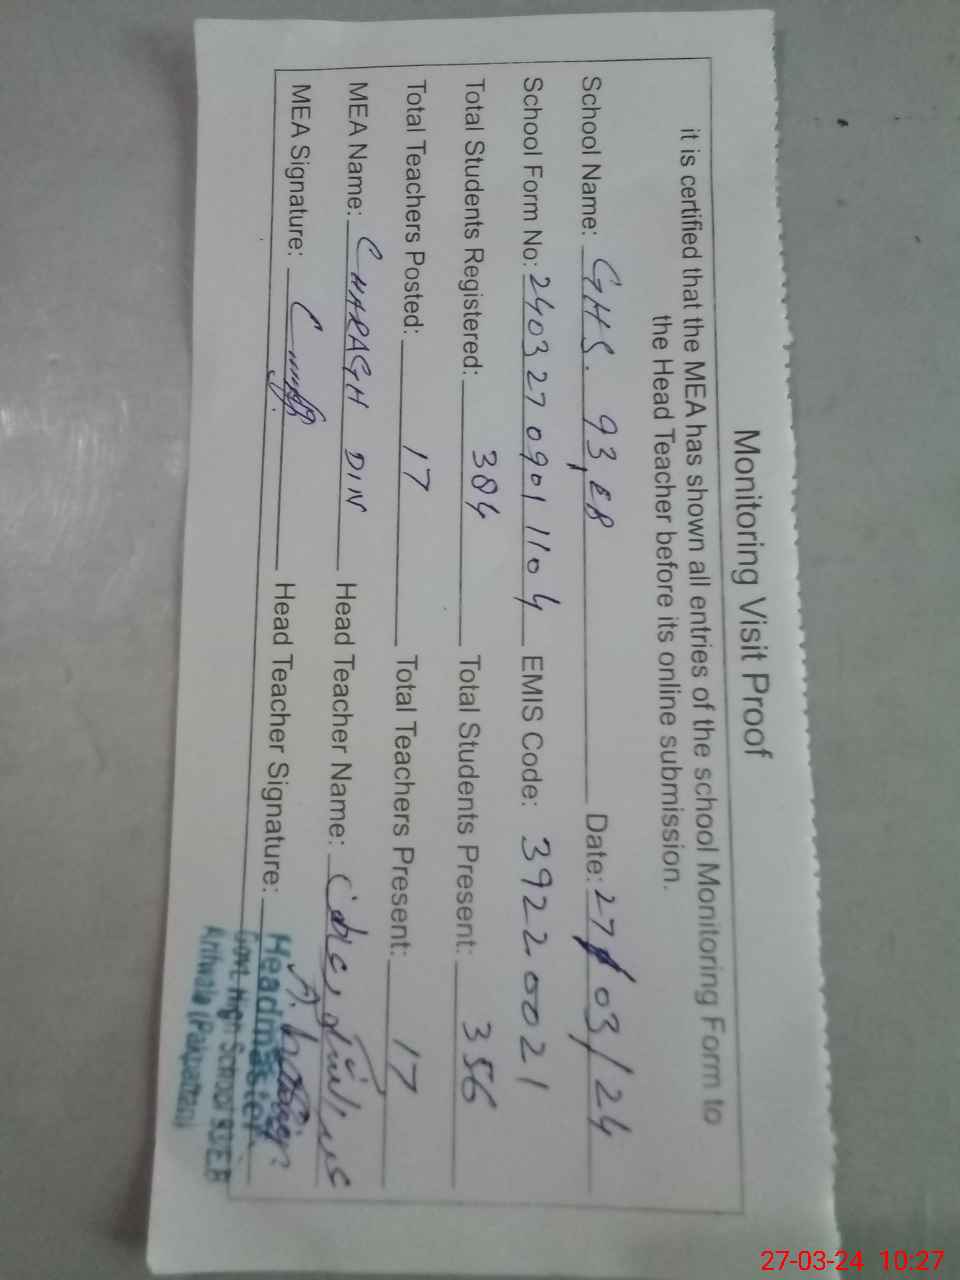 Monitoring Visit Proof
it is certified that the MEA has shown all entries of the school Monitoring Form to
the Head Teacher before its online submission.
School Name: GHS. 93, EB Date: 27/03/24
School Form No: 2403270901 1104 EMIS Code: 39220021
Total Students Registered: 384 Total Students Present: 356
Total Teachers Posted: 17 Total Teachers Present: 17
MEA Name: CHARAGH DIN Head Teacher Name:
MEA Signature: Head Teacher Signature:
Headmaster
Govt. High School 93/E.B
Arifwala (Pakpattan)
27-03-24 10:27